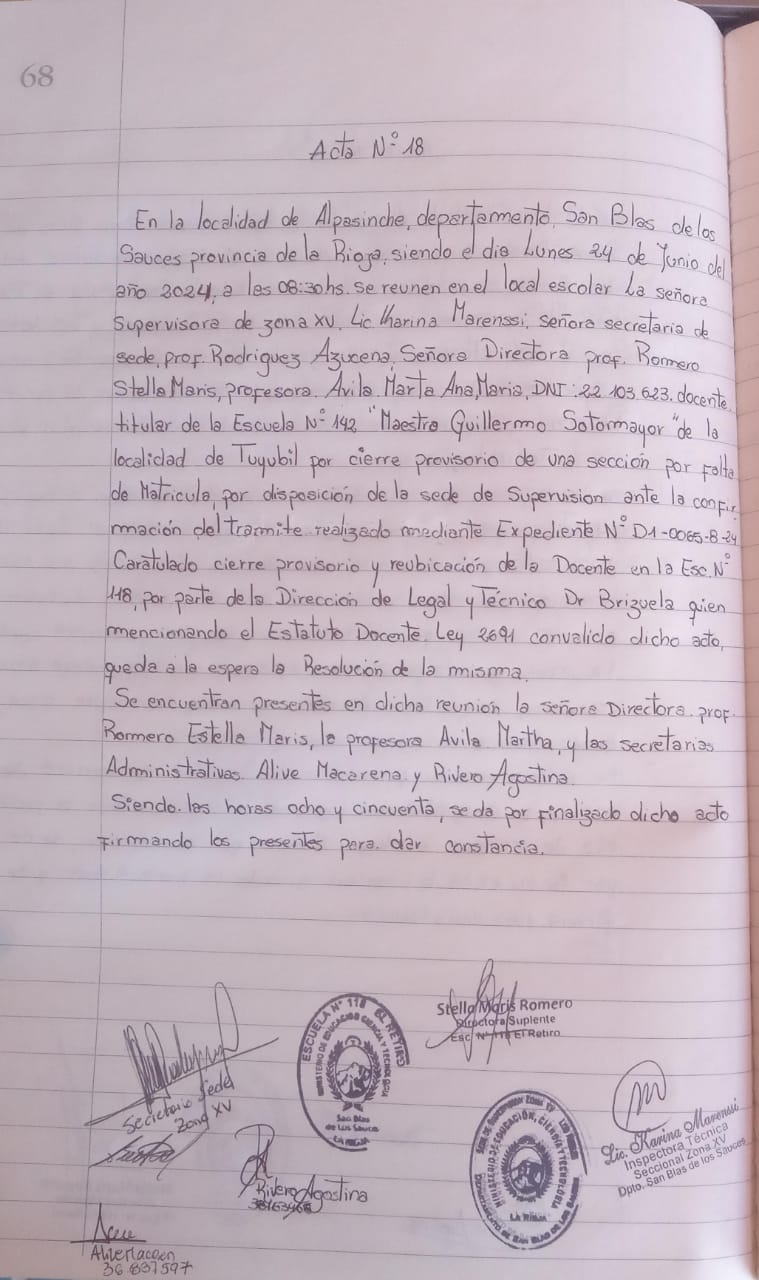 68
Acta N° 18
En la localidad de Alpasinche, departamento, San Blas de los
Sauces provincia de la Rioja, siendo el dia Lunes 24 de Junio del
año 2024, a las 08:30hs. se reunen en el local escolar la señora
Supervisora de zona XV, Lic. Kharina Marenssi, señora secretaria de
sede, prof. Rodriguez Azucena, Señora Directora prof. Rommero
Stella Maris, profesora. Avila Marta Ana Maria, DNI: 22.103.623. docente
titular de la Escuela N° 142 "Maestro Guillermo Sotormayor" de la
localidad de Tuyubil por cierre provisorio de una sección por falta
de Matricula, por disposición de la sede de Supervision ante la confir
mación del tramite realizado mediante Expediente N° D1-0065-8-24
Caratulado cierre provisorio y reubicación de la Docente en la Esc. N°
118, por parte de la Dirección de Legal y Técnico Dr Brizuela quien
mencionando el Estatuto Docente Ley 2691 convalido dicho acto,
queda a la espera la Resolución de la misma.
Se encuentran presentes en dicha reunión la señora Directora prof.
Rommero Estella Maris, la profesora Avila Martha, y las secretarias
Administrativas Alive Macarena y Rivero Agostina.
Siendo. las horas ocho y cincuenta, se da por finalizado dicho acto
firmando los presentes para dar constancia.
Secretaria Sede
Zona XV
ESCUELA N° 118 EL RETIRO
MINISTERIO DE EDUCACION CIENCIA Y TECNOLOGIA
San Blas
de Los Sauces
LA RIOJA
Stella Maris Romero
Directora Suplente
Esc. N° 118 El Retiro
Rivero Agostina
SEDE DE SUPERVISION ZONA XV
MINISTERIO DE EDUCACIÓN, CIENCIA Y TECNOLOGIA
LA RIOJA
DEPARTAMENTO DE SAN BLAS DE LOS SAUCES
Lic. Karina Marenssi
Inspectora Técnica
Seccional Zona XV
Dpto. San Blas de los Sauces
36.837597